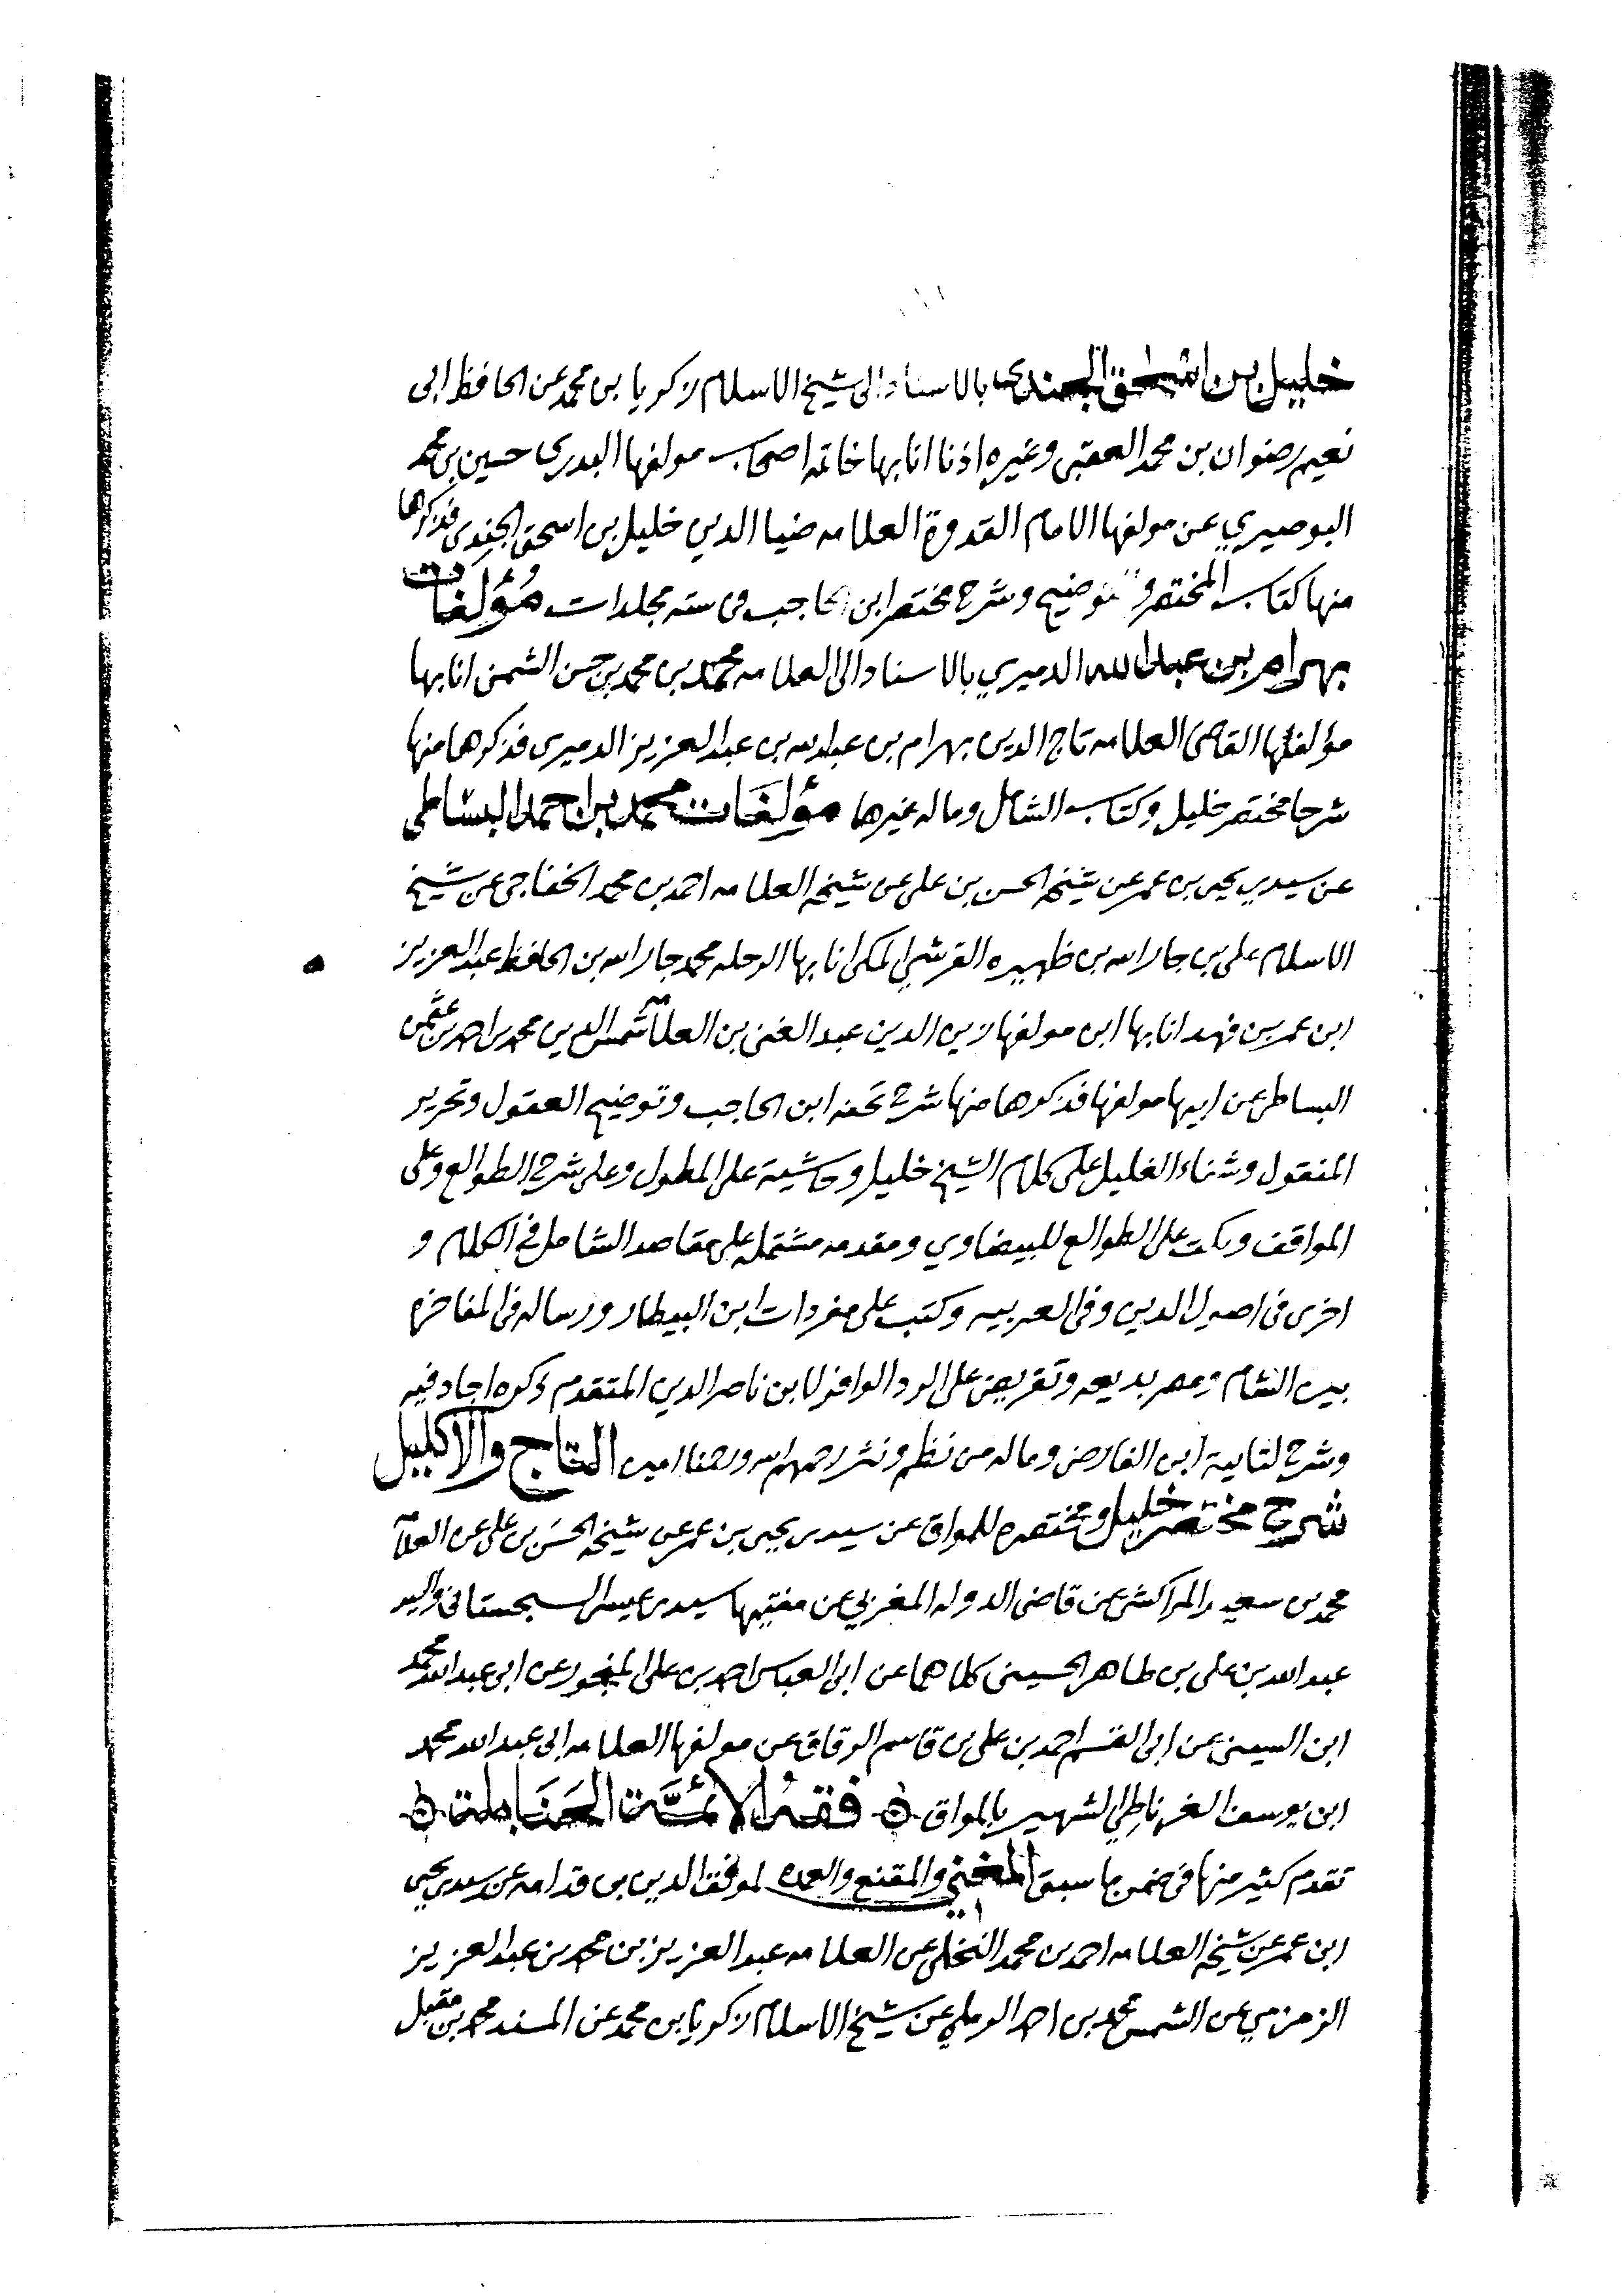 خليل بن اسحق الجندي بالاسناد الى شيخ الاسلام زكريا بن محمد عن الحافظ ابى
نعيم رضوان بن محمد العقبى وغيره اذنا انا بها خاتمه اصحاب مولفها البدرى حسين بن محمد
البوصيري عن مولفها الامام القدوة العلامه ضيا الدين خليل بن اسحق الجندى فذكرها
منها كتاب المختصر والتوضيح وشرح مختصر ابن الحاجب فى سته مجلدات مؤلفات
بهرام بن عبدالله الدميري بالاسناد الى العلامه محمد بن محمد بن حسن الشمنى انا بها
مؤلفها القاضى العلامه تاج الدين بهرام بن عبدالله بن عبد العزيز الدميرى فذكرها منها
شرحا مختصر خليل وكتاب الشامل وماله غيرها مؤلفات محمد بن احمد البساطى
عن سيدي يحيى بن عمر عن شيخه الحسن بن على عن شيخه العلامه احمد بن محمد الخفاجى عن شيخ
الاسلام على بن جار الله بن ظهيره القرشي المكى انا بها الرحله محمد جار الله بن الحافظ عبد العزيز
ابن عمر بن فهد انا بها ابن مولفها زين الدين عبد الغنى بن العلامة شمس الدين محمد بن احمد بن عثمن
البساطى عن ابيها مولفها فذكرها منها شرح تحفه ابن الحاجب وتوضيح العقول وتحرير
المنقول وشفاء الغليل على كلام الشيخ خليل وحاشية على المطول وعلى شرح الطوالع وعلى
المواقف ونكت على الطوالع للبيضاوي ومقدمه مشتمله على مقاصد الشامل في الكلام و
اخرى فى اصول الدين وفى العربيه وكتب على مفردات ابن البيطار ورساله فى المفاخره
بين الشام ومصر بديعه وتقريض على الرد الوافر لابن ناصر الدين المتقدم ذكره اجاد فيه
وشرح لتايية ابن الفارض وماله من نظم ونثر رحمهم الله ورحمنا امين التاج والاكليل
شرح مختصر خليل ومختصره للمواق عن سيدى يحيى بن عمر عن شيخه الحسن بن على عن العلامة
محمد بن سعيد المراكشى عن قاضى الدوله المغربي عن مفتيها سيدى عيسى السجستانى والسيد
عبد الله بن على بن طاهر الحسينى كلاهما عن ابى العباس احمد بن على المنجور عن ابى عبدالله محمد
ابن السيتنى عن ابى القسم احمد بن على بن قاسم الزقاق عن مولفها العلامه ابى عبدالله محمد
ابن يوسف الغرناطي الشهير بالمواق ۞ فقه الائمة الحنابلة ۞
تقدم كثير منها فى ضمن ما سبق المغني والمقنع والعمده لموفق الدين بن قدامه عن سيدى يحيى
ابن عمر عن شيخه العلامه احمد بن محمد النخلى عن العلامه عبد العزيز بن محمد بن عبد العزيز
الزمزمي عن الشمس محمد بن احمد الرملي عن شيخ الاسلام زكريا بن محمد عن المسند محمد بن مقبل